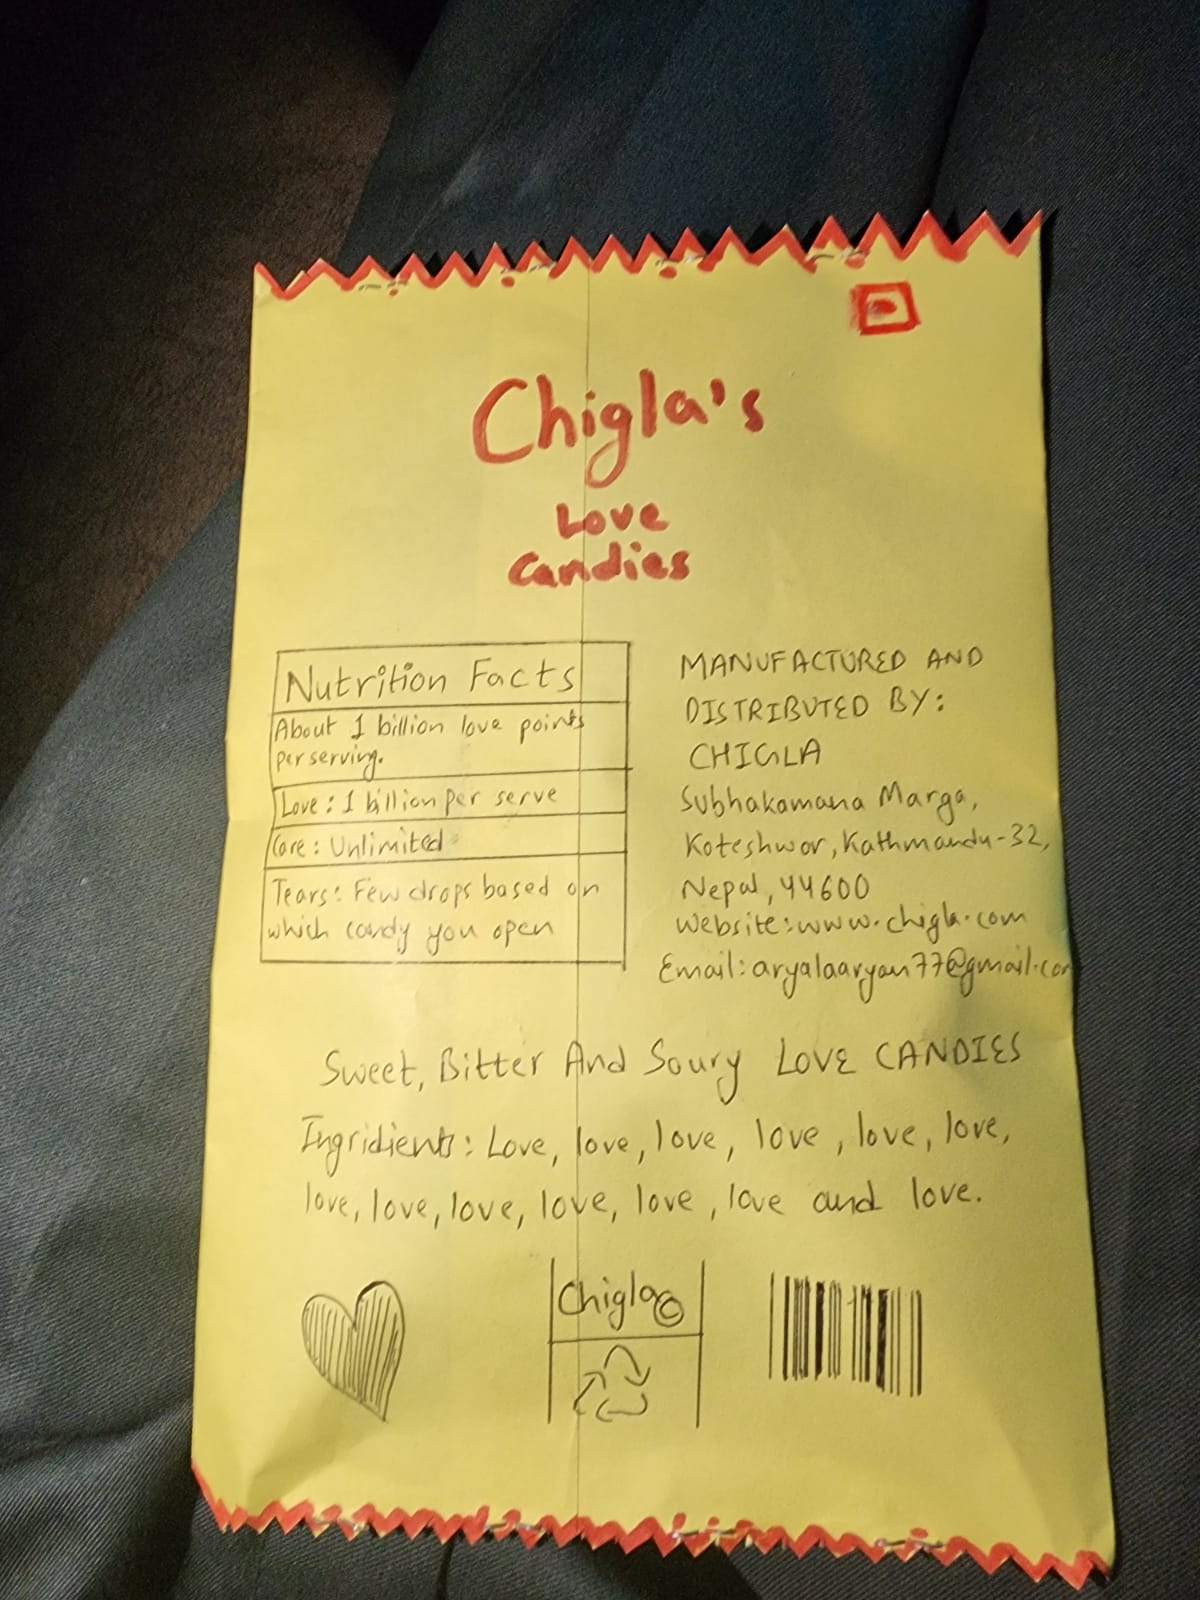 Chigla's
Love
Candies
Nutrition Facts
About 1 billion love points
per serving.
Love: 1 billion per serve
Care: Unlimited
Tears: Few drops based on
which candy you open
MANUFACTURED AND
DISTRIBUTED BY:
CHIGLA
Subhakamana Marga,
Koteshwor, Kathmandu-32,
Nepal, 44600
Website: www.chigla.com
Email: aryalaaryan77@gmail.com
Sweet, Bitter And Soury LOVE CANDIES
Ingridients: Love, love, love, love, love, love,
love, love, love, love, love, love and love.
Chigla©